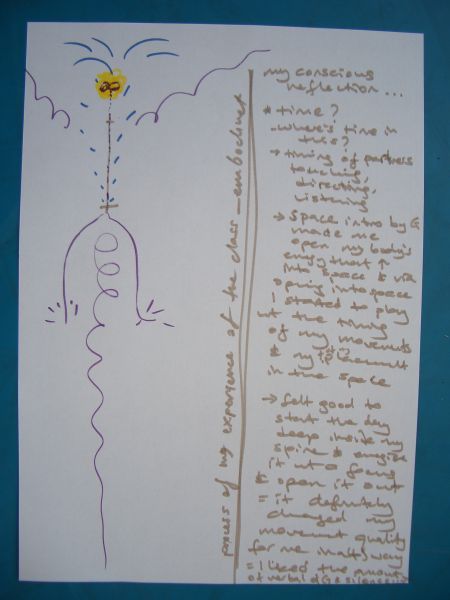 my conscious
reflection...
* time?
where's time in
this?
→ timing of partners
touching,
directing,
listening
→ space intro by G
made me
open my body's
energy that ↑
into space & via
opening into space
I started to play
w/ the timing
of my movements
& my
in the space
→ felt good to
start the day
deep inside my
spine & energize
it into a focus
& open it out
= it definitely
changed my
movement quality
for me in a way
= I liked the amount
of verbal d G & silence
process of my experience of the class - embodiment